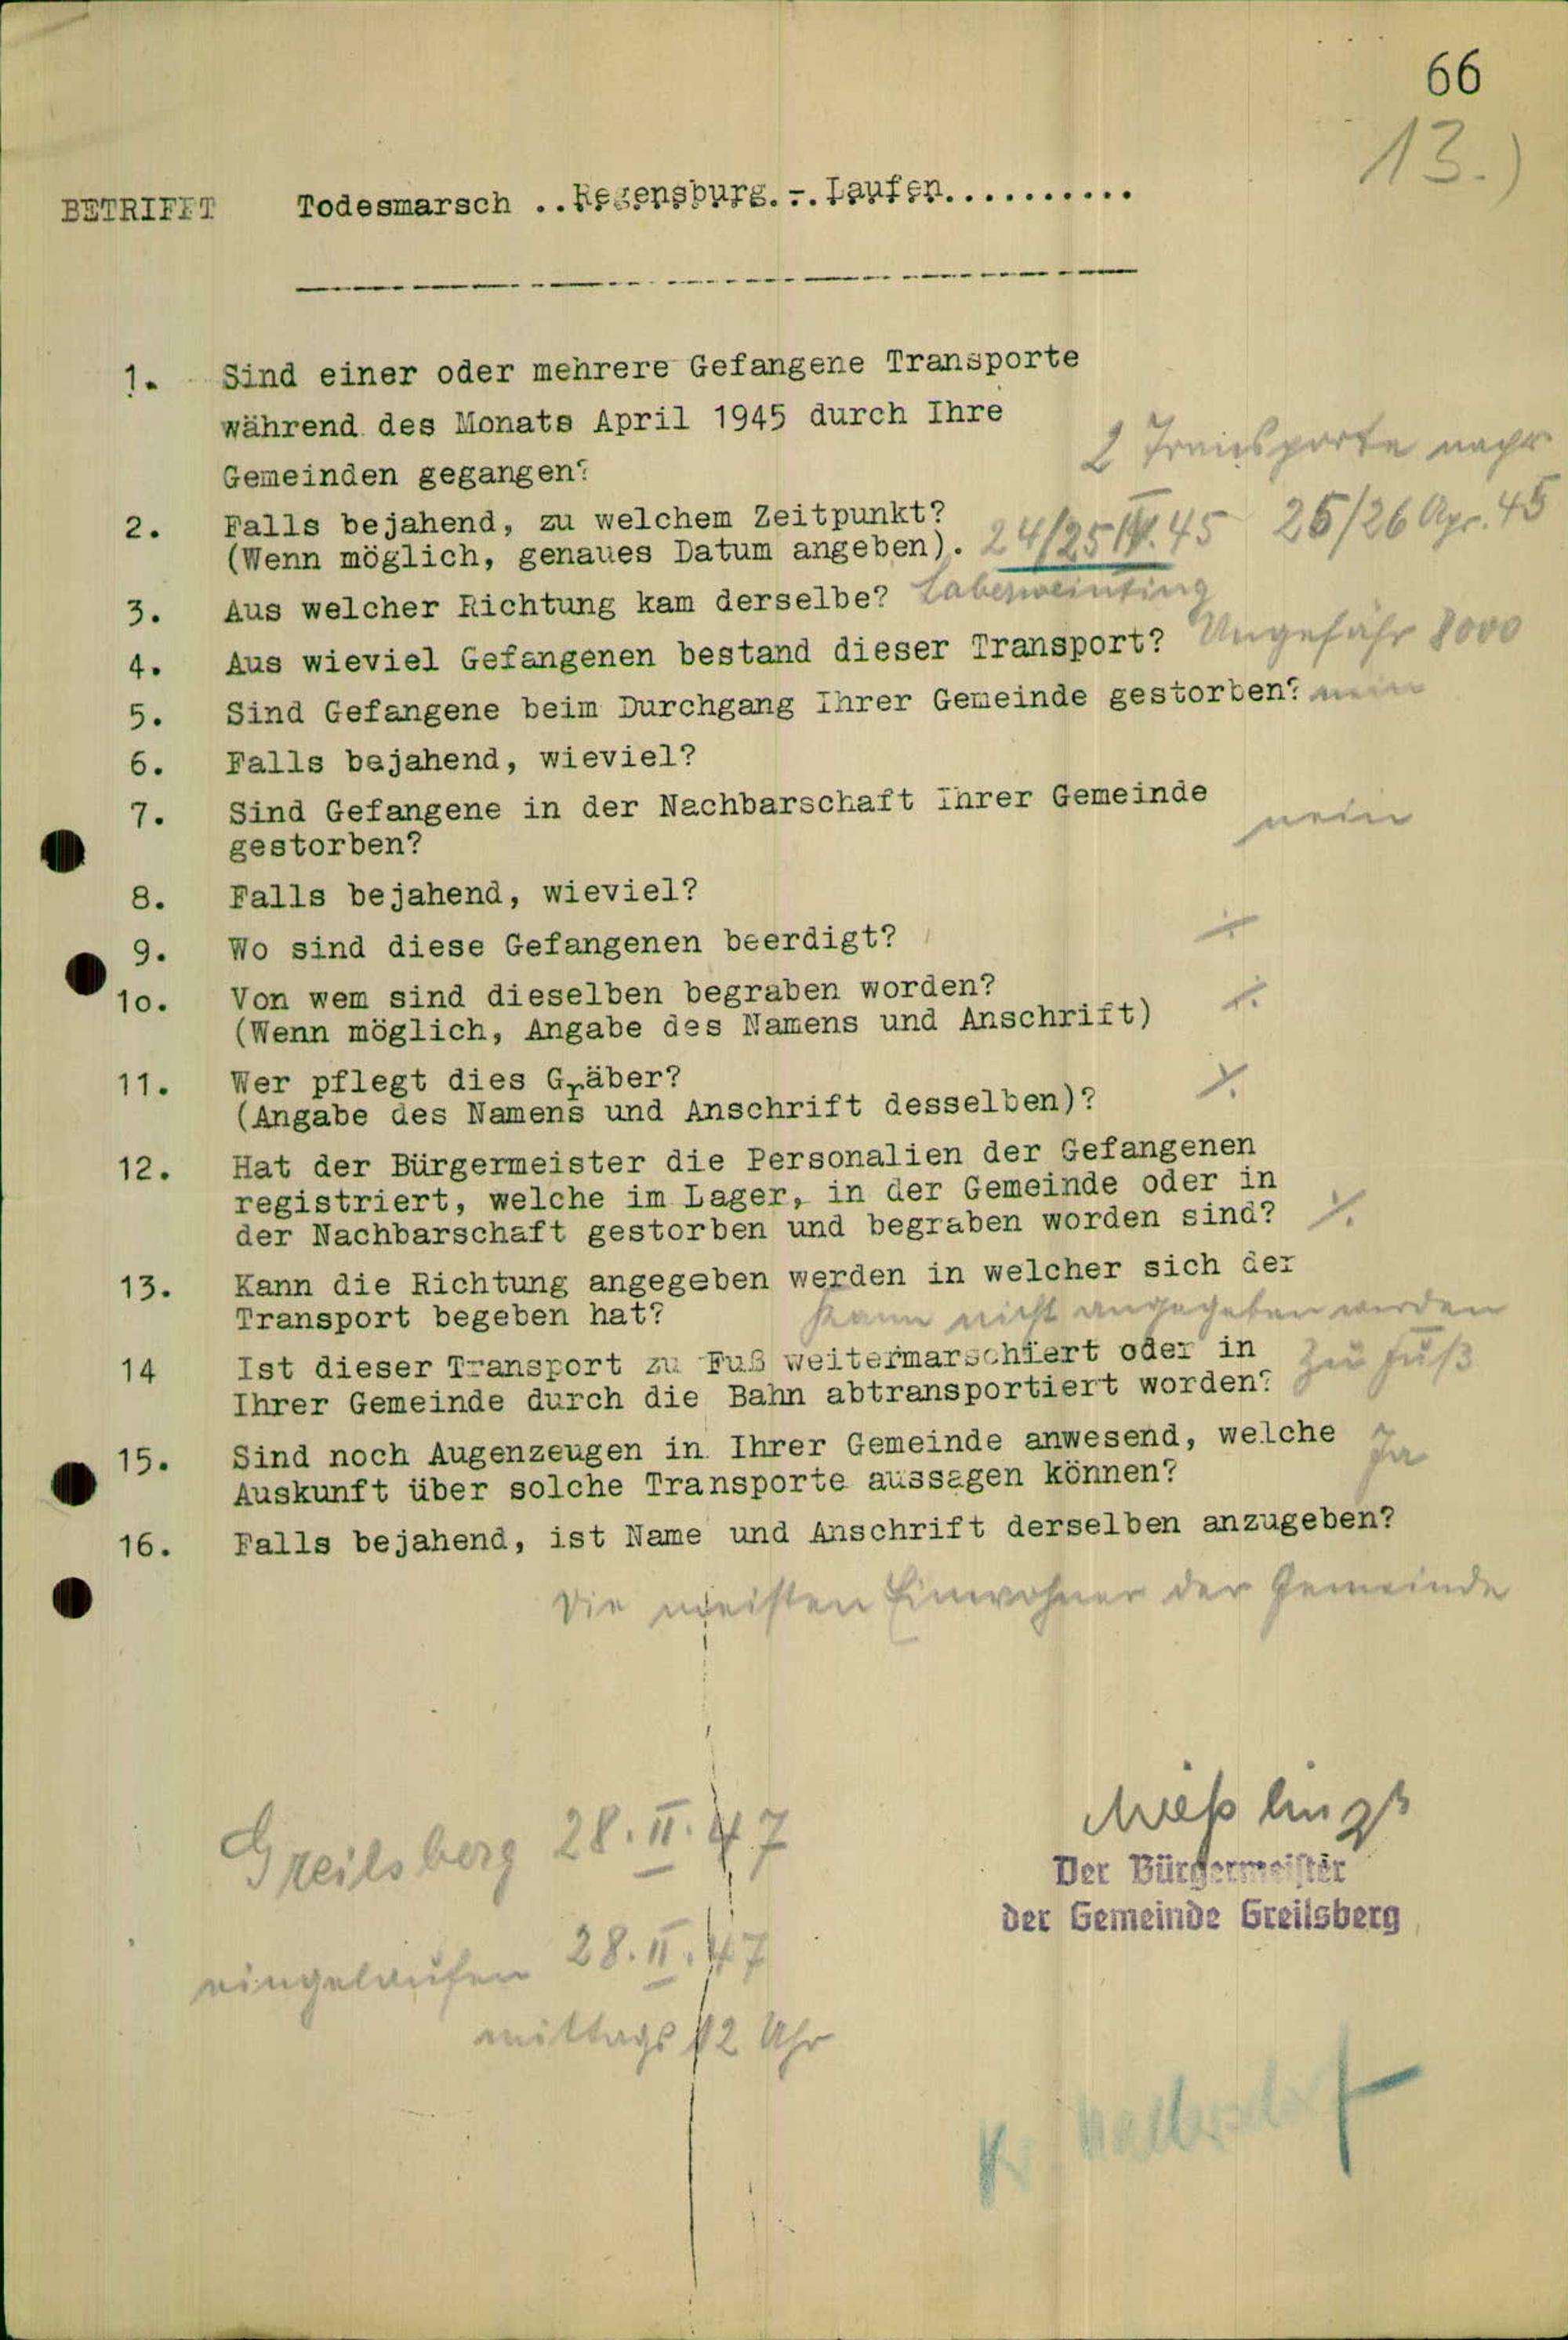 66
13.)
BETRIFFT Todesmarsch ..Regensburg.-.Laufen..........
1. Sind einer oder mehrere Gefangene Transporte
während des Monats April 1945 durch Ihre
Gemeinden gegangen? 2 Transporte
2. Falls bejahend, zu welchem Zeitpunkt?
(Wenn möglich, genaues Datum angeben). 24/25 IV. 45 25/26 Apr. 45
3. Aus welcher Richtung kam derselbe? Laberweinting
4. Aus wieviel Gefangenen bestand dieser Transport? Ungefähr 8000
5. Sind Gefangene beim Durchgang Ihrer Gemeinde gestorben? nein
6. Falls bejahend, wieviel?
7. Sind Gefangene in der Nachbarschaft Ihrer Gemeinde
gestorben? nein
8. Falls bejahend, wieviel?
9. Wo sind diese Gefangenen beerdigt? ⁒
10. Von wem sind dieselben begraben worden? ⁒
(Wenn möglich, Angabe des Namens und Anschrift)
11. Wer pflegt dies Gräber? ⁒
(Angabe des Namens und Anschrift desselben)?
12. Hat der Bürgermeister die Personalien der Gefangenen
registriert, welche im Lager, in der Gemeinde oder in
der Nachbarschaft gestorben und begraben worden sind? ⁒
13. Kann die Richtung angegeben werden in welcher sich der
Transport begeben hat? kann nicht angegeben werden
14 Ist dieser Transport zu Fuß weitermarschiert oder in zu Fuß
Ihrer Gemeinde durch die Bahn abtransportiert worden?
15. Sind noch Augenzeugen in Ihrer Gemeinde anwesend, welche Ja
Auskunft über solche Transporte aussagen können?
16. Falls bejahend, ist Name und Anschrift derselben anzugeben?
Die meisten Einwohner der Gemeinde
Greilsberg 28.II.47
Der Bürgermeister
der Gemeinde Greilsberg
eingelaufen 28.II.47
mittags 12 Uhr